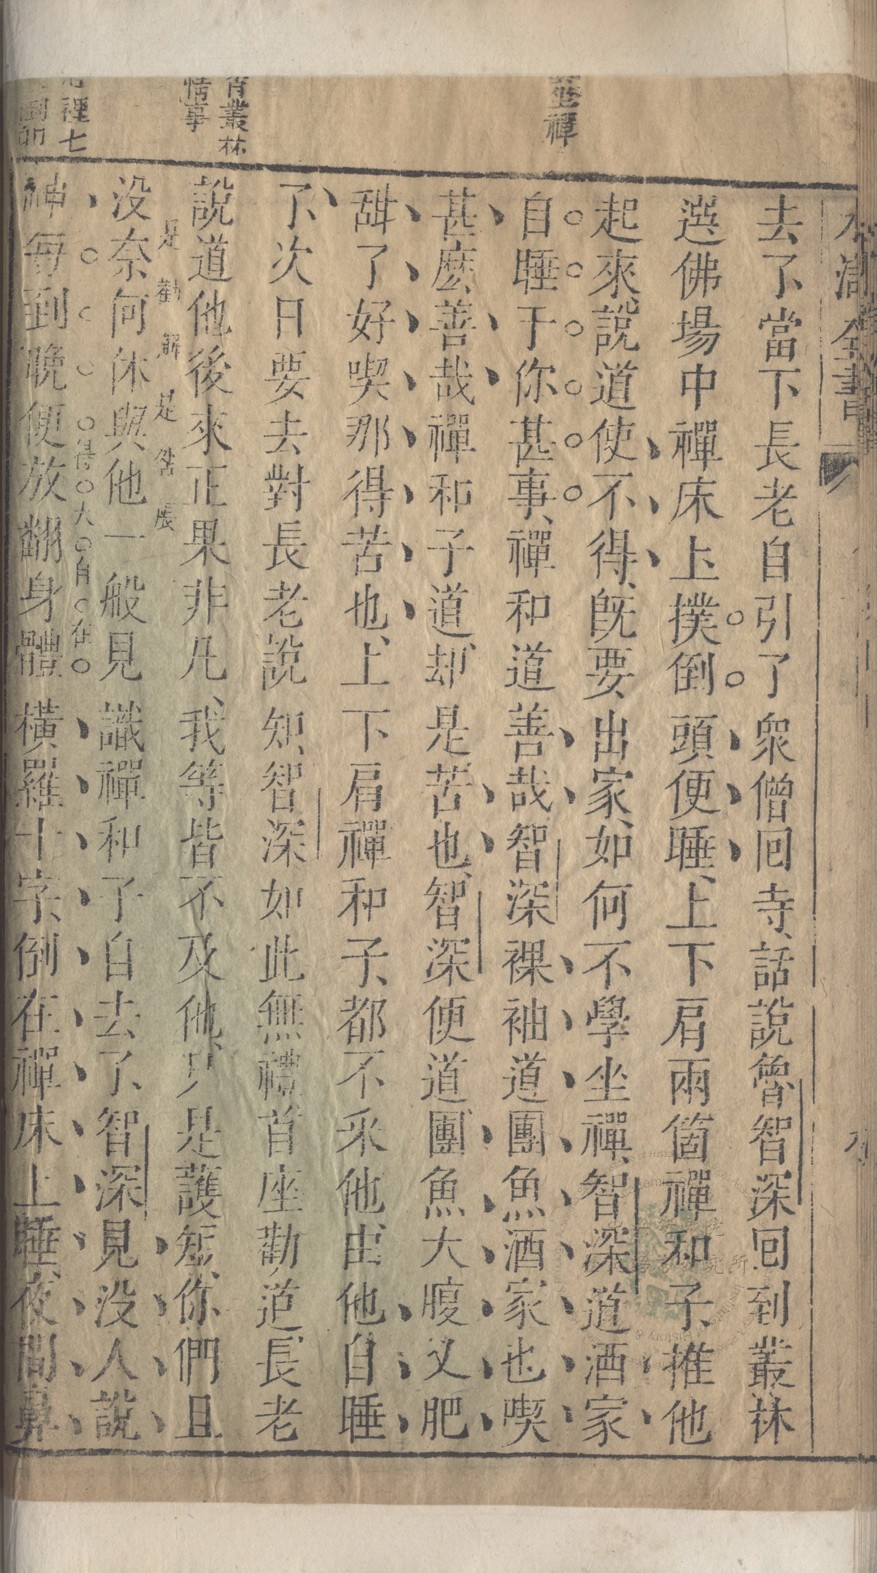 水滸全書
去了當下長老自引了衆僧回寺話說魯智深回到叢林
選佛場中禪床上撲倒頭便睡上下肩兩箇禪和子推他
起來說道使不得既要出家如何不學坐禪智深道酒家
自睡干你甚事禪和道善哉智深裸袖道團魚酒家也喫
甚麽善哉禪和子道却是苦也智深便道團魚大腹又肥
甜了好喫那得苦也上下肩禪和子都不采他由他自睡
了次日要去對長老說知智深如此無禮首座勸道長老
說道他後來正果非凡我等皆不及他只是護短你們且
是勸解是
没奈何休與他一般見識禪和子自去了智深見没人說
得大自在
神每到晚便放翻身體橫羅十字倒在禪床上睡夜間鼻
坐禪
叢林
情事
裡七